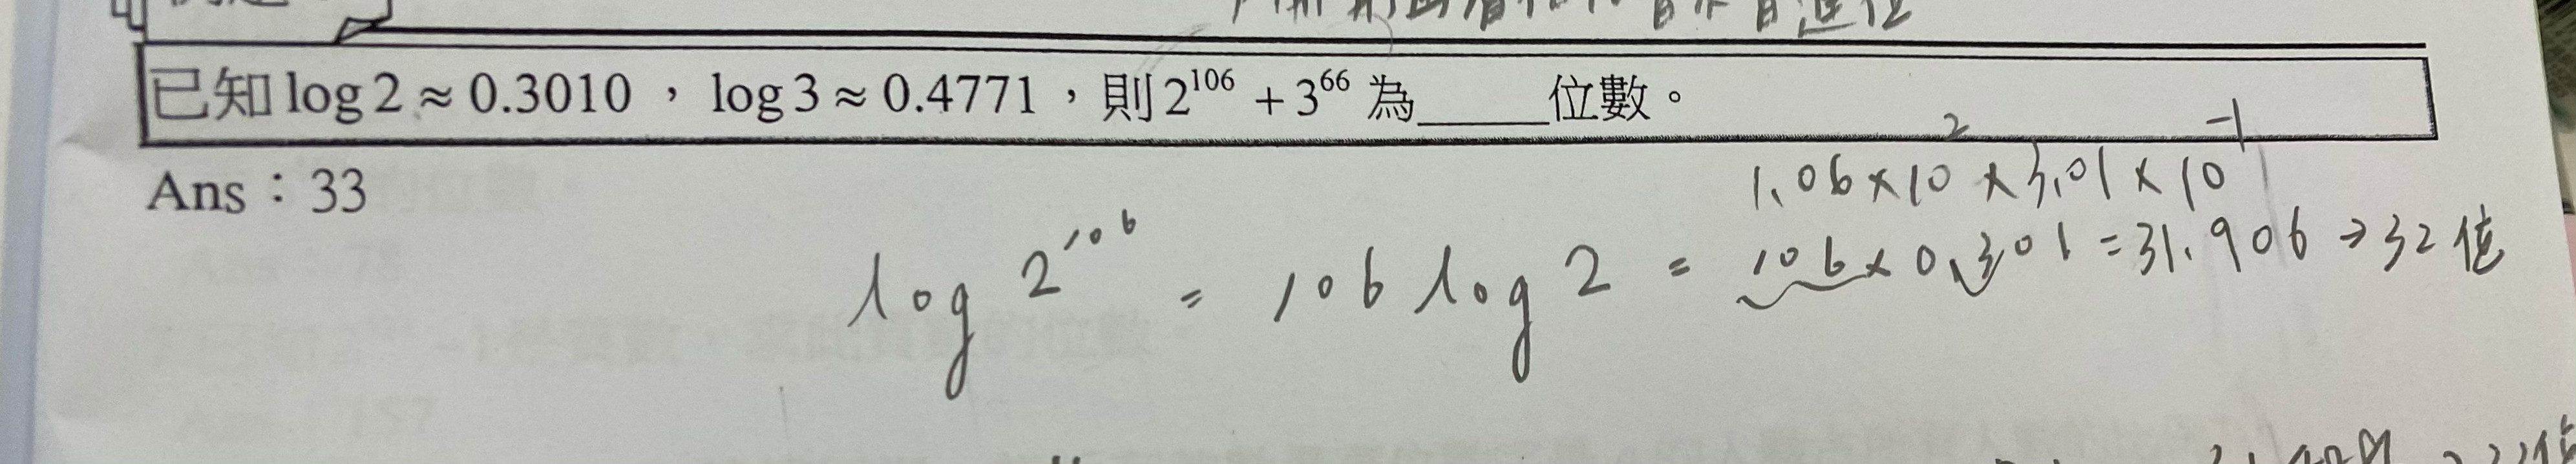 有進位
已知 log 2 ≈ 0.3010 ， log 3 ≈ 0.4771 ，則 2^106 + 3^66 為_____位數。
Ans：33
1.06×10^2 × 3.01 × 10^-1
log 2^106 = 106 log 2 = 106 × 0.301 = 31.906 → 32位